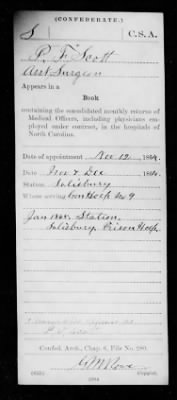 (CONFEDERATE.)
S C.S.A.
P. F. Scott
Ass't Surgeon
Appears in a
Book
containing the consolidated monthly returns of
Medical Officers, including physicians em-
ployed under contract, in the hospitals of
North Carolina.
Date of appointment Nov 12, 1864.
Date Nov & Dec, 1864.
Station Salisbury
Where serving Gen Hosp No 9
Jan 1865. Station,
Salisbury. Prison Hosp.
Confed. Arch., Chap. 6, File No. 280.
Copyist.